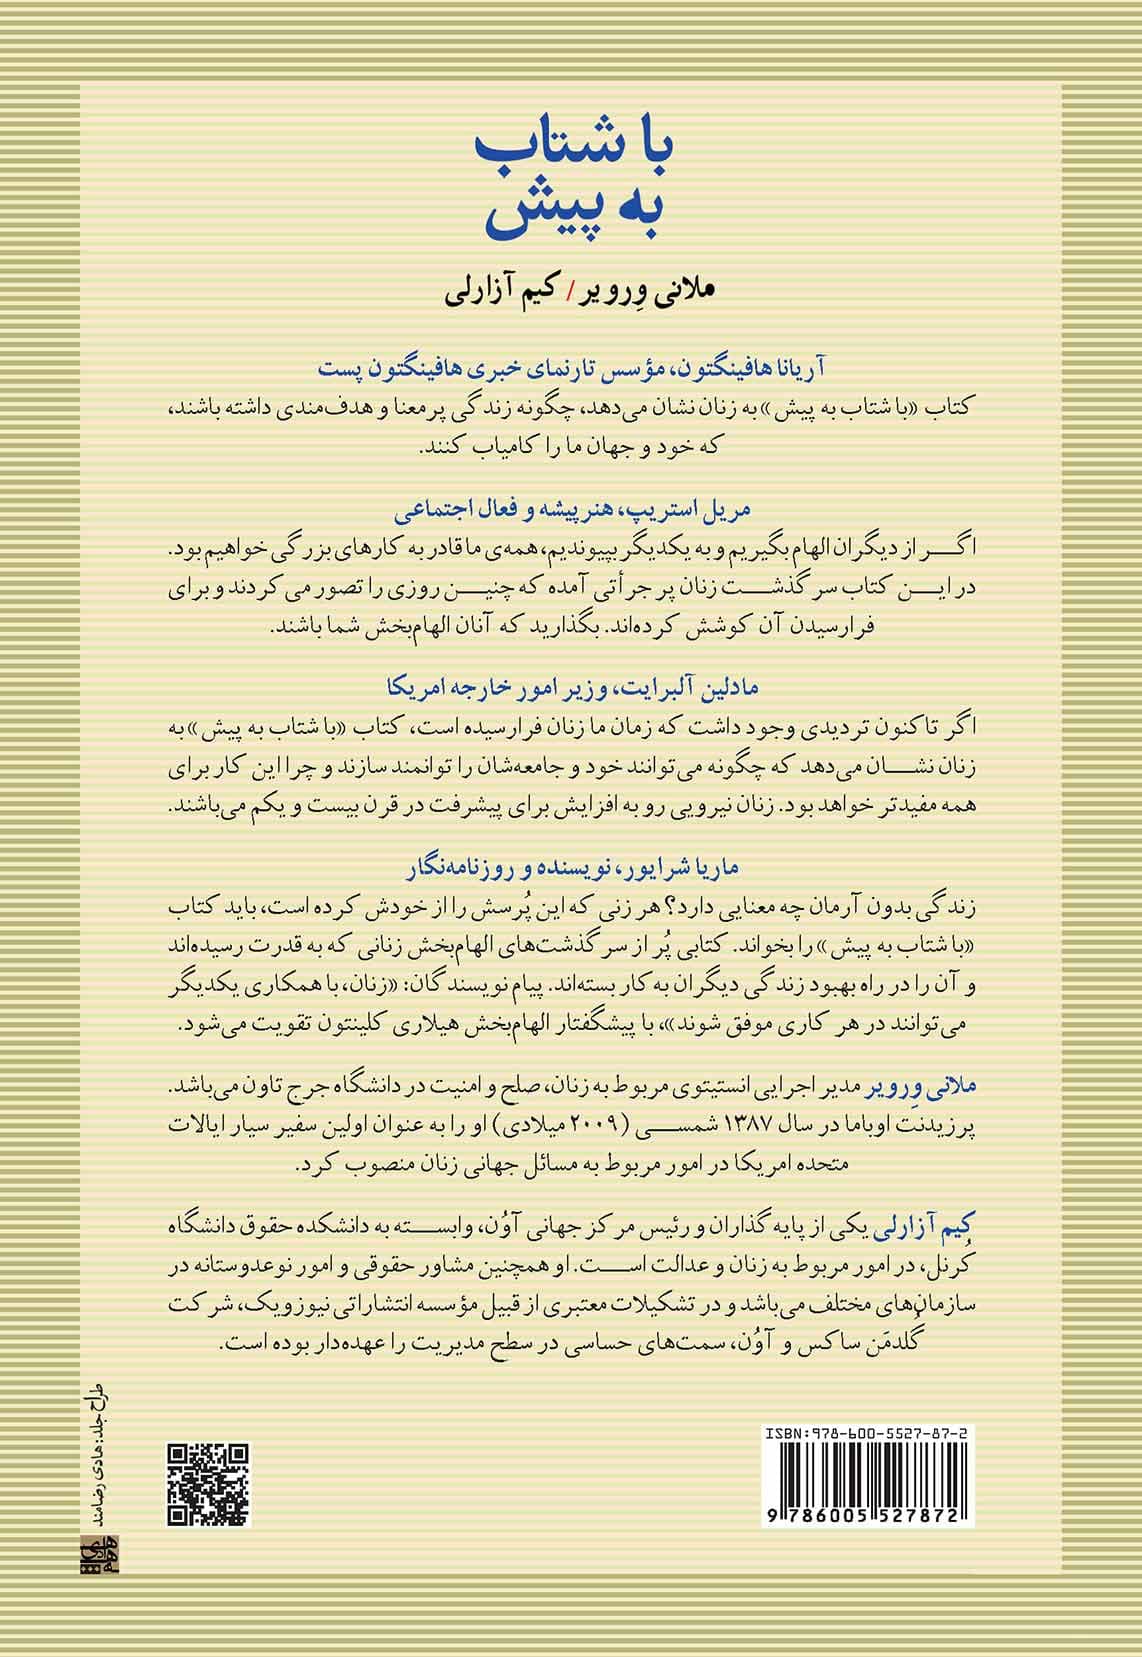 با شتاب
به پیش
ملانی وِرویر / کیم آزارلی
آریانا هافینگتون، مؤسس تارنمای خبری هافینگتون پست
کتاب «با شتاب به پیش» به زنان نشان می‌دهد، چگونه زندگی پرمعنا و هدف‌مندی داشته باشند،
که خود و جهان ما را کامیاب کنند.
مریل استریپ، هنرپیشه و فعال اجتماعی
اگر از دیگران الهام بگیریم و به یکدیگر بپیوندیم، همه‌ی ما قادر به کارهای بزرگی خواهیم بود.
در این کتاب سرگذشت زنان پر جرأتی آمده که چنین روزی را تصور می‌کردند و برای
فرارسیدن آن کوشش کرده‌اند. بگذارید که آنان الهام‌بخش شما باشند.
مادلین آلبرایت، وزیر امور خارجه امریکا
اگر تاکنون تردیدی وجود داشت که زمان ما زنان فرارسیده است، کتاب «با شتاب به پیش» به
زنان نشان می‌دهد که چگونه می‌توانند خود و جامعه‌شان را توانمند سازند و چرا این کار برای
همه مفیدتر خواهد بود. زنان نیرویی رو به افزایش برای پیشرفت در قرن بیست و یکم می‌باشند.
ماریا شرایور، نویسنده و روزنامه‌نگار
زندگی بدون آرمان چه معنایی دارد؟ هر زنی که این پُرسش را از خودش کرده است، باید کتاب
«با شتاب به پیش» را بخواند. کتابی پُر از سرگذشت‌های الهام‌بخش زنانی که به قدرت رسیده‌اند
و آن را در راه بهبود زندگی دیگران به کار بسته‌اند. پیام نویسندگان: «زنان، با همکاری یکدیگر
می‌توانند در هر کاری موفق شوند»، با پیشگفتار الهام‌بخش هیلاری کلینتون تقویت می‌شود.
ملانی وِرویر مدیر اجرایی انستیتوی مربوط به زنان، صلح و امنیت در دانشگاه جرج تاون می‌باشد.
پرزیدنت اوباما در سال ۱۳۸۷ شمسی (۲۰۰۹ میلادی) او را به عنوان اولین سفیر سیار ایالات
متحده امریکا در امور مربوط به مسائل جهانی زنان منصوب کرد.
کیم آزارلی یکی از پایه گذاران و رئیس مرکز جهانی آوُن، وابسته به دانشکده حقوق دانشگاه
کُرنل، در امور مربوط به زنان و عدالت است. او همچنین مشاور حقوقی و امور نوعدوستانه در
سازمان‌های مختلف می‌باشد و در تشکیلات معتبری از قبیل مؤسسه انتشاراتی نیوزویک، شرکت
گُلدمَن ساکس و آوُن، سمت‌های حساسی در سطح مدیریت را عهده‌دار بوده است.
طراح جلد: هادی رضامند
ISBN: 978-600-5527-87-2
9 786005 527872